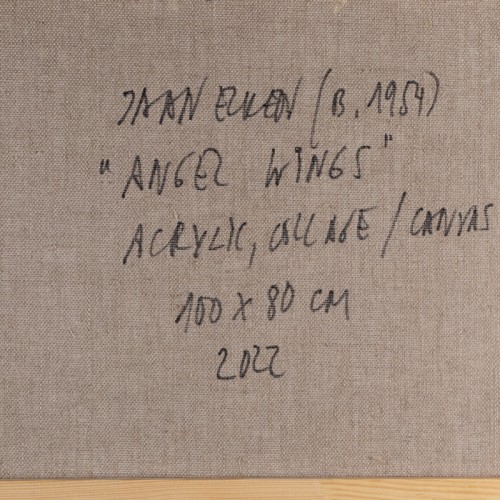 JAAN ELKEN (B. 1954)
"ANGEL WINGS"
ACRYLIC, COLLAGE / CANVAS
100 X 80 CM
2022